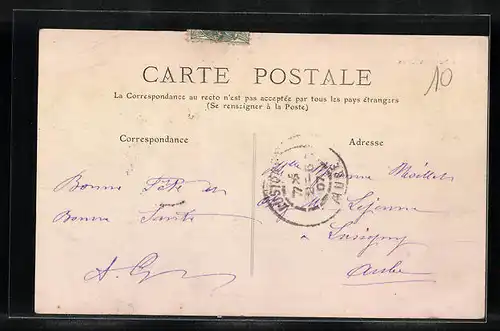 10
CARTE POSTALE
La Correspondance au recto n'est pas acceptée par tous les pays étrangers
(Se renseigner à la Poste)
Correspondance
Adresse
Bonne Fête et
Bonne Santé
Lejeune
à Lusigny
Aube
LUSIGNY
AUBE